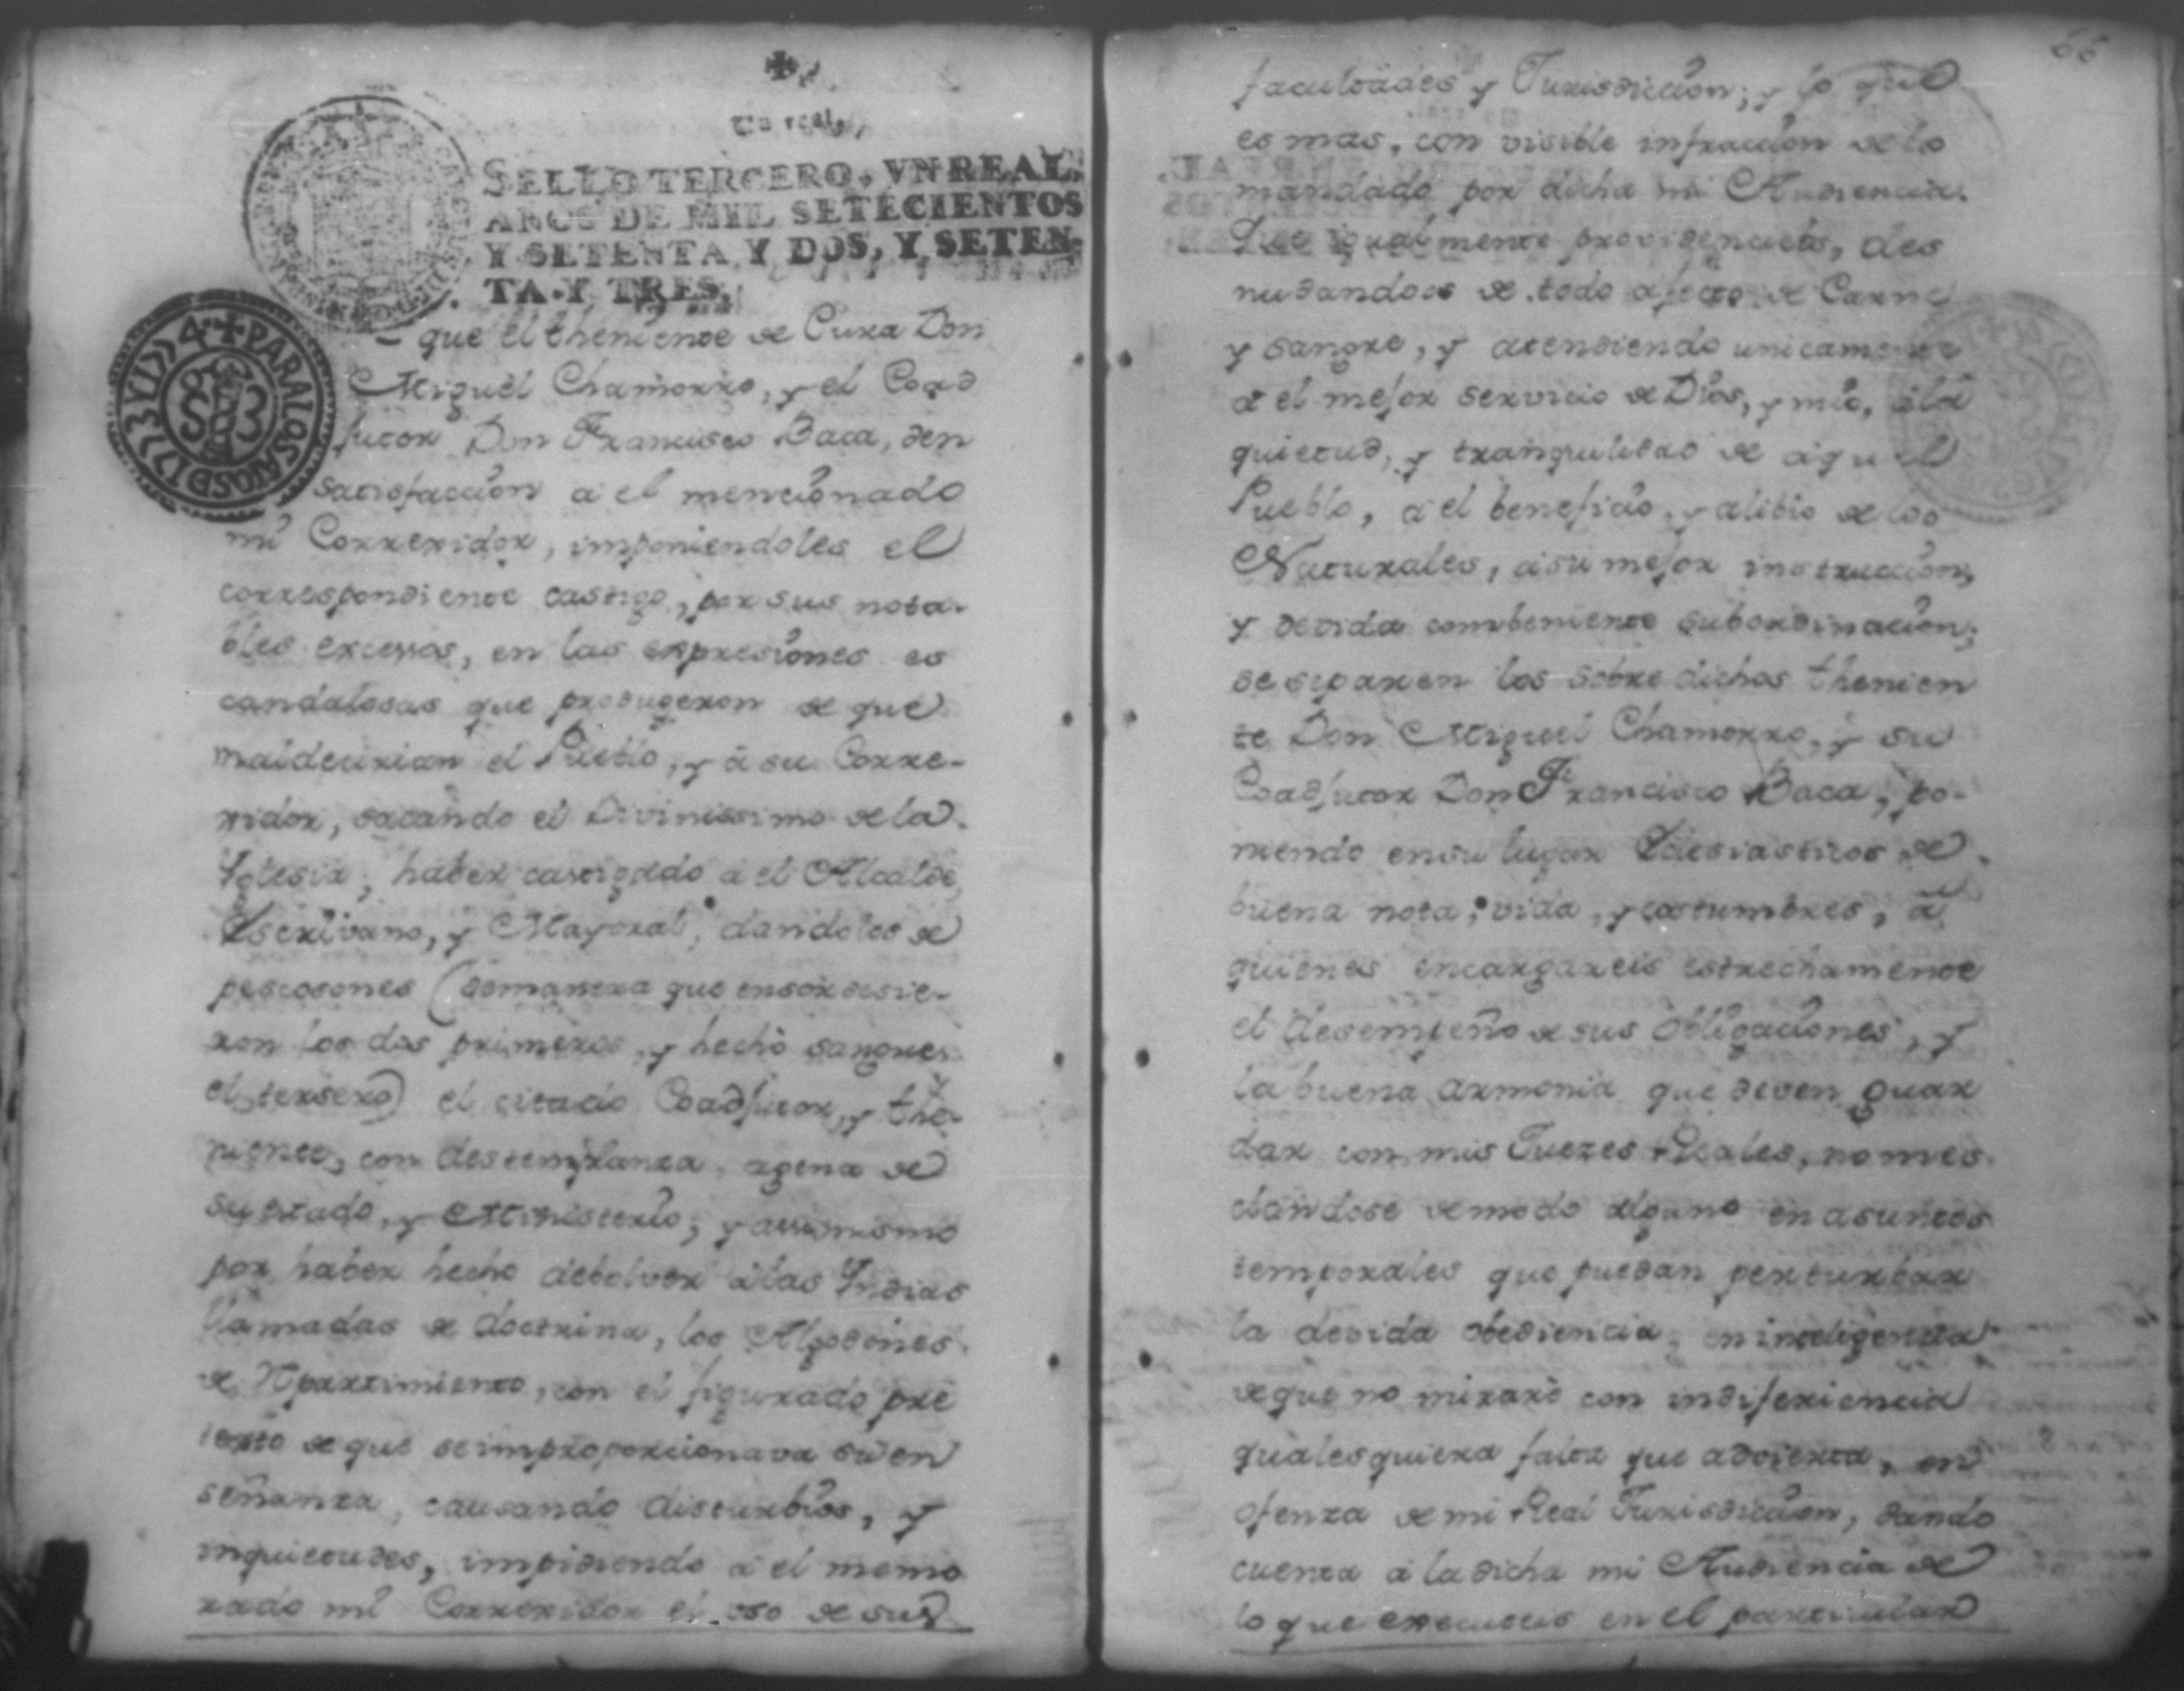 Un real
SELLO TERCERO, VN REAL,
AÑOS DE MIL SETECIENTOS
Y SETENTA Y DOS, Y SETEN-
TA Y TRES.
PARALOSAÑOSDI773YI774
que el theniente de Cura Don
Miguel Chamorro, y el Coad
jutor Don Francisco Baca, den
satisfaccion a el mencionado
mi Correxidor, imponiendoles el
correspondiente castigo, por sus nota-
bles excessos, en las expresiones es
candalosas que produgeron de que
maldecirian el Pueblo, y â su Corre-
xidor, sacando el Divinissimo dela
Iglesia; haber castigado a el Alcalde,
Escrivano, y Mayoral, dandoles de
pescosones (demanera que ensordesie-
ron los dos primeros, y hechò sangre
el tersero) el citado Coadjutor, y the-
niente, con destemplanza, agena de
su estado, y Ministerio; y assimismo
por haber hecho debolver âlas Indias
llamadas de doctrina, los Algodones
de Rpartimiento, con el figurado pre
texto de que seimproporcionava su en
señanza, causando disturbios, y
inquietudes, impidiendo a el memo
rado mi Correxidor el uso de sus
66
facultades y Jurisdiccion; y lo que
es mas, con visible infraccion de lo
mandado por dicha mi Audiencia.
igualmente providenciareis, des
nudandoos de todo afecto de Carne
y sangre, y atendiendo unicamente
a el mejor servicio de Dios, y mio, âla
quietud, y tranquilidad de aquel
Pueblo, a el beneficio, y alibio de los
Naturales, asu mejor instruccion,
y devida combeniente subordinacion;
se separen los sobre dichos thenien
te Don Miguel Chamorro, y su
Coadjutor Don Francisco Baca, po-
niendo ensu lugar Eclesiasticos de
buena nota, vida, y costumbres, â
quienes encargareis estrechamente
el desempeño de sus obligaciones, y
la buena armonia que deven guar
dar con mis Juezes Reales, nomes
clandose demodo alguno en asuntos
temporales que puedan perturbar
la devida obediencia, en inteligencia
deque no mirarè con indiferiencia
qualesquiera falta que advierta, en
ofenza de mi Real Jurisdiccion, dando
cuenta a la dicha mi Audiencia de
lo que executeis en el particular